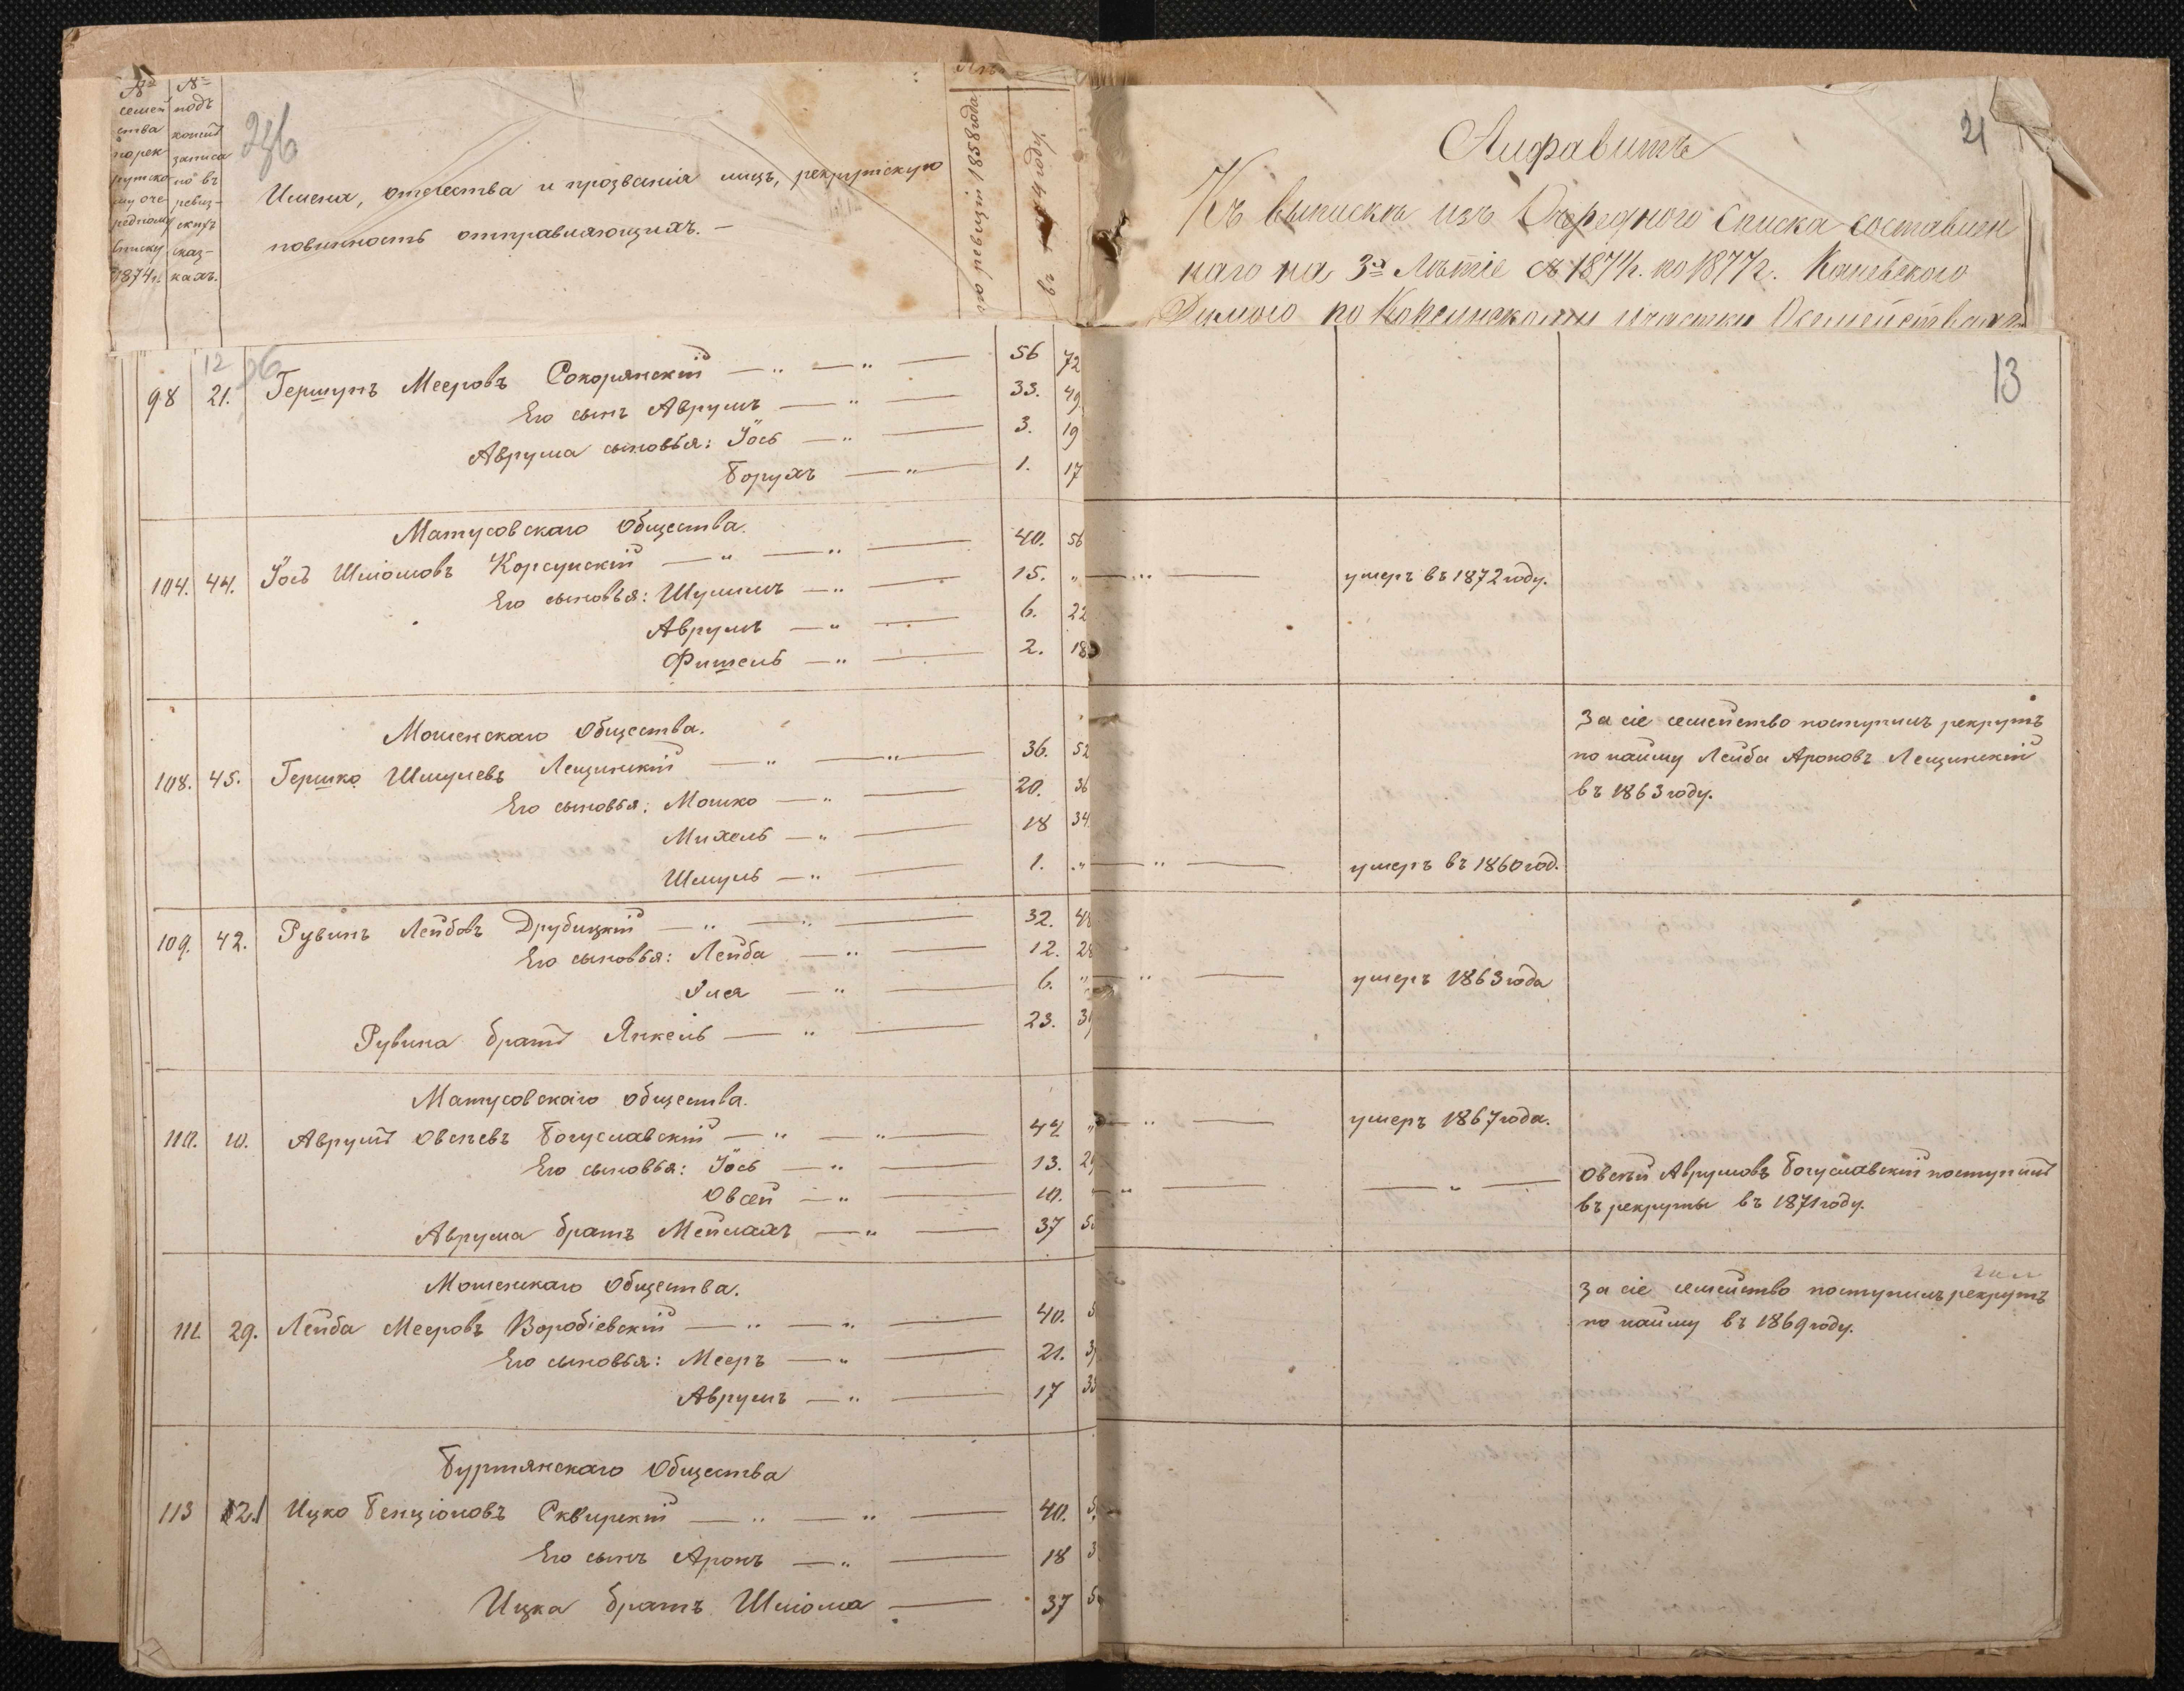 № семейства по рекрутскому очередному списку 1874 г.
№ подъ коимъ записано въ ревизскихъ сказкахъ.
Имена, отчества и прозванія лицъ, рекрутскую
повинность отправляющихъ. —
по ревизіи 1858 года
въ 1874 году.
Алфавитъ
21
Къ выпискѣ изъ Очереднаго Списка составлен
наго на 3х Лѣтіе съ 1874 г. по 1877 г. Каневского
по Корсунскому участку
12
13
98 21. Гершунъ Мееровъ Сокорянскій — „ — „ — 56 72
Его сынъ Аврумъ — „ — 33. 49
Аврума сыновья: Іось — „ — 3. 19
Борухъ — „ — 1. 17
Матусовскаго Общества.
104. 44. Іось Шліомовъ Корсунскій — „ — „ — 40. 56
Его сыновья: Шулимъ — „ — 15. „ — „ — умеръ въ 1872 году.
Аврумъ — „ — 6. 22
Фишель — „ — 2. 18
Мошенскаго Общества.
108. 45. Гершко Шмулевъ Лещинскій — „ — „ — 36. 52
Его сыновья: Мошко — „ — 20. 36
Михель — „ — 18 34
Шмуль — „ — 1. „ — „ — умеръ въ 1860 год.
За сіе семейство поступилъ рекрутъ
по найму Лейба Ароновъ Лещинскій
въ 1863 году.
109. 42. Рувинъ Лейбовъ Друбицкій — „ — „ — 32. 48
Его сыновья: Лейба — „ — 12. 28
— „ — 6. „ — „ — умеръ 1863 года
Рувина братъ Янкель — „ — 23.
Матусовскаго Общества.
110. 10. Аврумъ Овсѣевъ Богуславскій — „ — „ — „ — „ — умеръ 1867 года.
Его сыновья: Іось — „ — 13.
Овсей — „ — 10. — „ — — „ — Овсѣй Аврумовъ Богуславскій поступилъ
въ рекруты въ 1871 году.
Аврума братъ Меймахъ — „ — 37
Мошенскаго Общества.
111. 29. Лейба Мееровъ Воробіевскій — „ — „ — 40.
Его сыновья: Мееръ — „ — 21.
Аврумъ — „ — 17
За сіе семейство поступилъ рекрутъ
по найму въ 1869 году.
Буртянскаго Общества
113 12. Ицко Бенціоновъ Сквирскій — „ — „ — 40.
Его сынъ Аронъ — „ — 18
Ицка братъ Шліома — 37